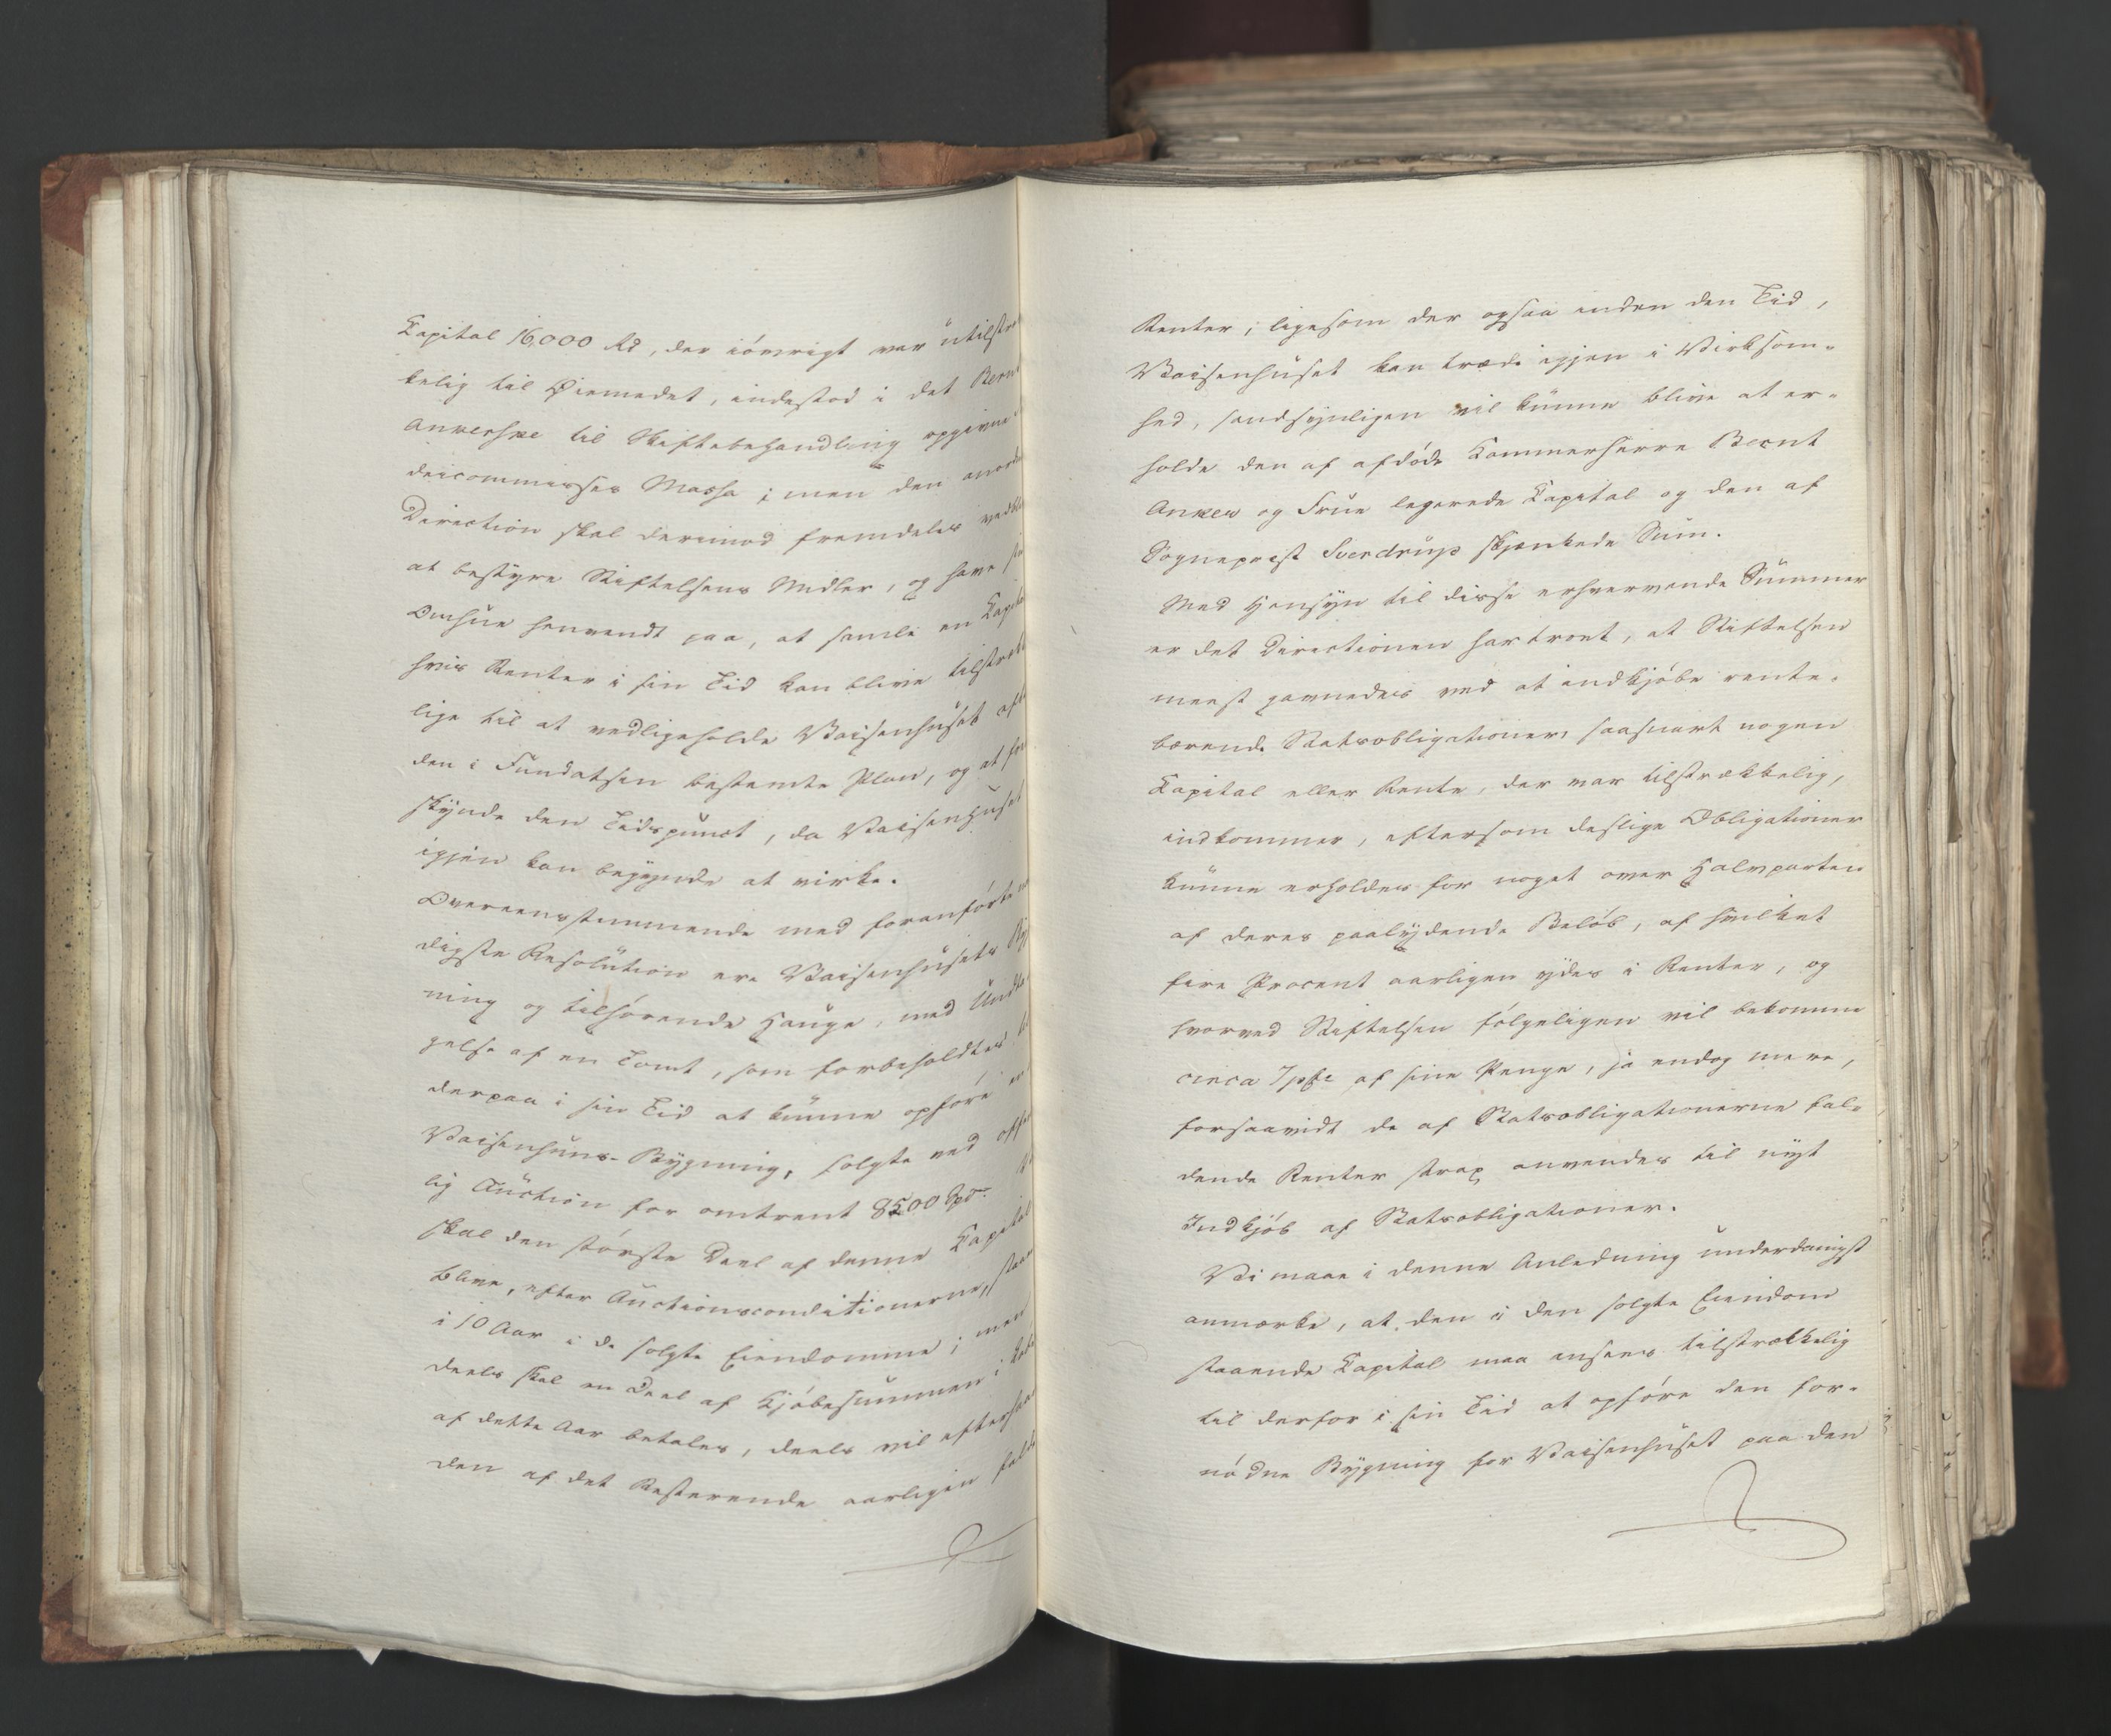 Capital 16,000 Rd, der iøvrigt var utilstræk
kelig til Øiemedet, indestod i det Bernt
Ankerske til Skiftebehandling opgivne
deicommisses Massa; men den anord
Direction skal derimod fremdeles vedbli
at bestyre Stiftelsens Midler, og have sin
Omhue henvendt paa, at samle en Capital
hvis Renter i sin Tid kan blive tilstræk
lige til at vedligeholde Vaisenhuset efter
den i Fundatsen bestemte Plan, og at frem
skynde den Tidspunct, da Vaisenhuset
igjen kan begynde at virke.
Overeensstemmende med foranførte
digste Resolution ere Vaisenhusets Byg
ning og tilhørende Hauge, med Undta
gelse af en Tomt, som forbeholdtes
derpaa i sin Tid at kunne opføre en
Vaisenhuus-Bygning, solgte ved offent
lig Auction for omtrent 8500 Spd.
skal den største Deel af denne Capital
blive, efter Auctionsconditionerne, staae
i 10 Aar i de solgte Eiendomme; men
deels skal en Deel af Kjøbesummen i Løbet
af dette Aar betales, deels vil efterhaan
den af det Resterende aarligen falde
Renter, ligesom der ogsaa inden den Tid,
Vaisenhuset kan træde igjen i Virksom-
hed, sandsynligen vil kunne blive at er-
holde den af afdøde Kammerherre Bernt
Anker og Frue legerede Capital og den af
Sognepræst Sverdrup skjænkede Sum.
Med Hensyn til disse erhvervende Summer
er det Directionen har troet, at Stiftelsen
meest gavnedes ved at indkjøbe rente-
bærende Statsobligationer, saasnart nogen
Capital eller Rente, der var tilstrækkelig,
indkommer, eftersom deslige Obligationer
kunne erholdes for noget over Halvparten
af deres paalydende Beløb, af hvilket
fire Procent aarligen ydes i Renter, og
hvorved Stiftelsen følgeligen vil bekomme
circa 7 pCt af sine Penge, ja endog mere,
forsaavidt de af Statsobligationerne fal-
dende Renter strax anvendes til nyt
Indkjøb af Statsobligationer.
Vi maae i denne Anledning underdanigst
anmærke, at den i den solgte Eiendom
staaende Capital maa ansees tilstrækkelig
til derfor i sin Tid at opføre den for-
nødne Bygning for Vaisenhuset paa den